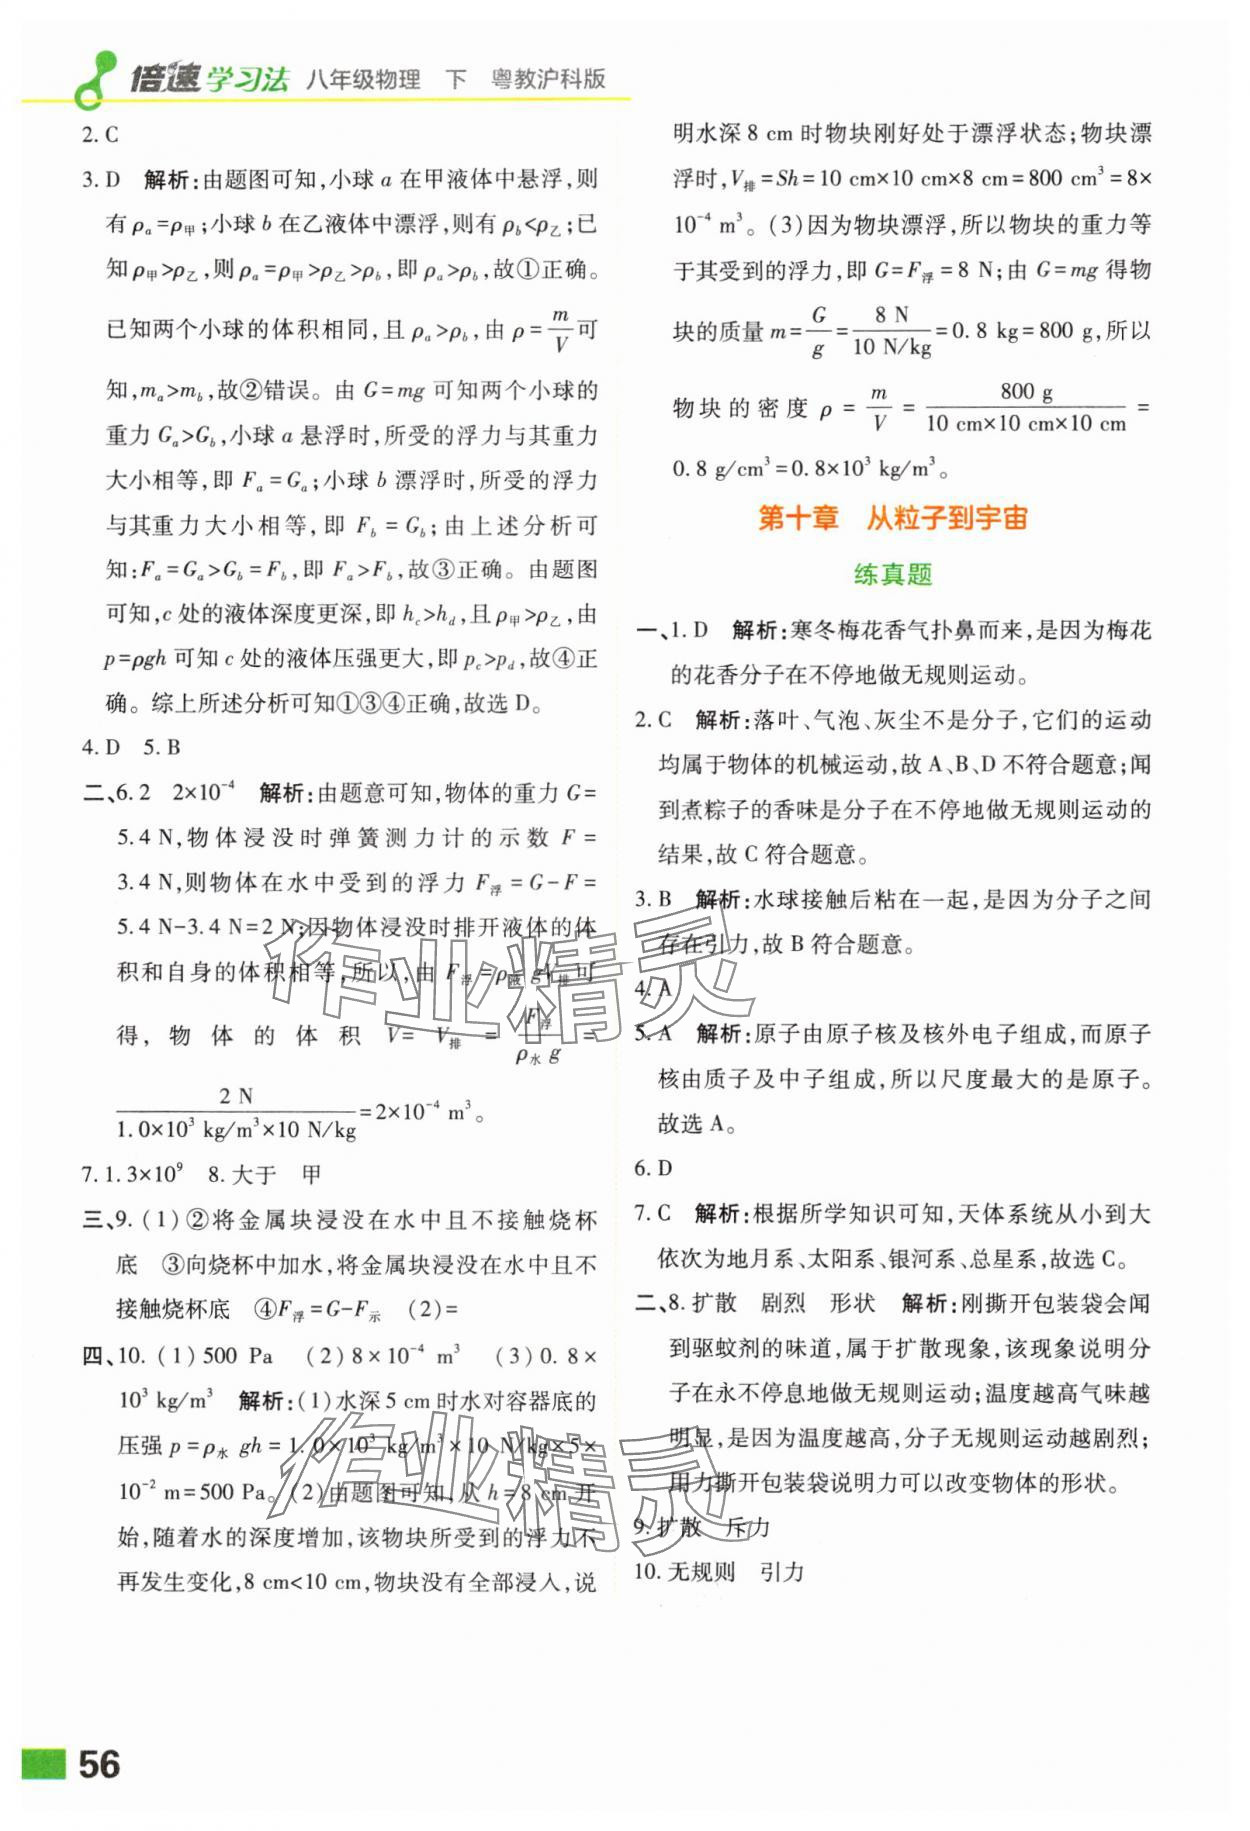 倍速学习法 八年级物理 下 粤教沪科版
2. C
3. D 解析:由题图可知,小球 a 在甲液体中悬浮,则
有 ρa=ρ甲;小球 b 在乙液体中漂浮,则有 ρb<ρ乙;已
知ρ甲>ρ乙,则ρa=ρ甲>ρ乙>ρb,即ρa>ρb,故①正确。
已知两个小球的体积相同,且 ρa>ρb,由 ρ=m/V可
知,ma>mb,故②错误。由 G=mg 可知两个小球的
重力 Ga>Gb,小球 a 悬浮时,所受的浮力与其重力
大小相等,即 Fa=Ga;小球 b 漂浮时,所受的浮力
与其重力大小相等,即 Fb=Gb;由上述分析可
知:Fa=Ga>Gb=Fb,即 Fa>Fb,故③正确。由题图
可知,c 处的液体深度更深,即 hc>hd,且 ρ甲>ρ乙,由
p=ρgh 可知 c 处的液体压强更大,即 pc>pd,故④正
确。综上所述分析可知①③④正确,故选 D。
4. D 5. B
二、6. 2 2×10⁻⁴ 解析:由题意可知,物体的重力 G=
5. 4 N,物体浸没时弹簧测力计的示数 F=
3. 4 N,则物体在水中受到的浮力 F浮=G-F=
5. 4 N-3. 4 N=2 N;因物体浸没时排开液体的体
积和自身的体积相等,所以,由 F浮=ρ液 gV排可
得,物体的体积 V=V排=F浮/(ρ水 g)=
2 N/(1. 0×10³ kg/m³×10 N/kg)=2×10⁻⁴ m³。
7. 1. 3×10⁹ 8. 大于 甲
三、9. (1)②将金属块浸没在水中且不接触烧杯
底 ③向烧杯中加水,将金属块浸没在水中且不
接触烧杯底 ④F浮=G-F示 (2)=
四、10. (1)500 Pa (2)8×10⁻⁴ m³ (3)0. 8×
10³ kg/m³ 解析:(1)水深 5 cm 时水对容器底的
压强 p=ρ水 gh=1. 0×10³ kg/m³×10 N/kg×5×
10⁻² m=500 Pa。(2)由题图可知,从 h=8 cm 开
始,随着水的深度增加,该物块所受到的浮力不
再发生变化,8 cm<10 cm,物块没有全部浸入,说
明水深 8 cm 时物块刚好处于漂浮状态;物块漂
浮时,V排=Sh=10 cm×10 cm×8 cm=800 cm³=8×
10⁻⁴ m³。(3)因为物块漂浮,所以物块的重力等
于其受到的浮力,即 G=F浮=8 N;由 G=mg 得物
块的质量 m=G/g=8 N/(10 N/kg)=0. 8 kg=800 g,所以
物块的密度 ρ=m/V=800 g/(10 cm×10 cm×10 cm)=
0. 8 g/cm³=0. 8×10³ kg/m³。
第十章 从粒子到宇宙
练真题
一、1. D 解析:寒冬梅花香气扑鼻而来,是因为梅花
的花香分子在不停地做无规则运动。
2. C 解析:落叶、气泡、灰尘不是分子,它们的运动
均属于物体的机械运动,故 A、B、D 不符合题意;闻
到煮粽子的香味是分子在不停地做无规则运动的
结果,故 C 符合题意。
3. B 解析:水球接触后粘在一起,是因为分子之间
存在引力,故 B 符合题意。
4. A
5. A 解析:原子由原子核及核外电子组成,而原子
核由质子及中子组成,所以尺度最大的是原子。
故选 A。
6. D
7. C 解析:根据所学知识可知,天体系统从小到大
依次为地月系、太阳系、银河系、总星系,故选 C。
二、8. 扩散 剧烈 形状 解析:刚撕开包装袋会闻
到驱蚊剂的味道,属于扩散现象,该现象说明分
子在永不停息地做无规则运动;温度越高气味越
明显,是因为温度越高,分子无规则运动越剧烈;
用力撕开包装袋说明力可以改变物体的形状。
9. 扩散 斥力
10. 无规则 引力
作业精灵
作业精灵
56